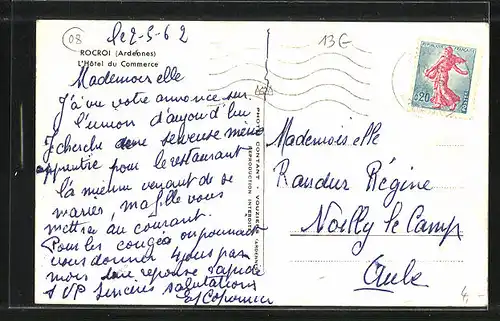 08
le 2-5-62
ROCROI (Ardennes)
L'Hôtel du Commerce
Mademoiselle
J'ai vu votre annonce sur
l'union d'aujourd'hui
Je cherche une serveuse même
apprentie pour le restaurant
la mienne venant de se
marier, ma fille vous
mettra au courant.
Pour les congés on pourrait
vous donner 4 jours par
mois une reponse rapide
SVP Sincères salutations
PHOT. CONTANT - VOUZIERS (ARDENNES)
REPRODUCTION INTERDITE
13E
REPUBLIQUE FRANÇAISE
0,20
POSTES
Mademoiselle
Régine
le Camp
Aube
4,-